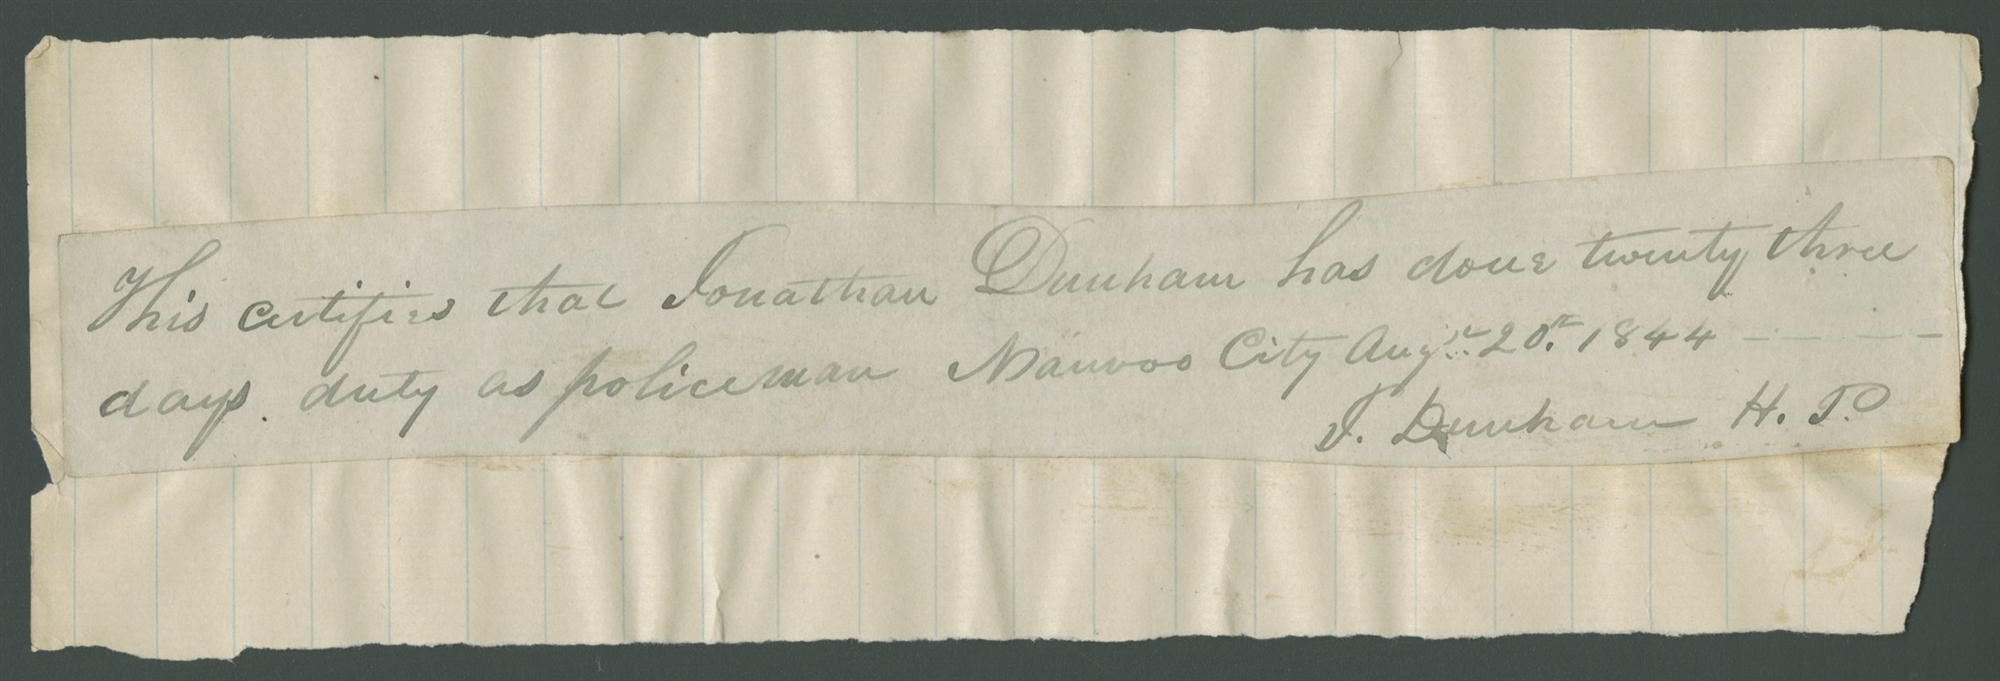 This certifies that Jonathan Dunham has done twenty three
days duty as policeman Nauvoo City Augst 20th 1844 - - - -
J. Dunham H. P.